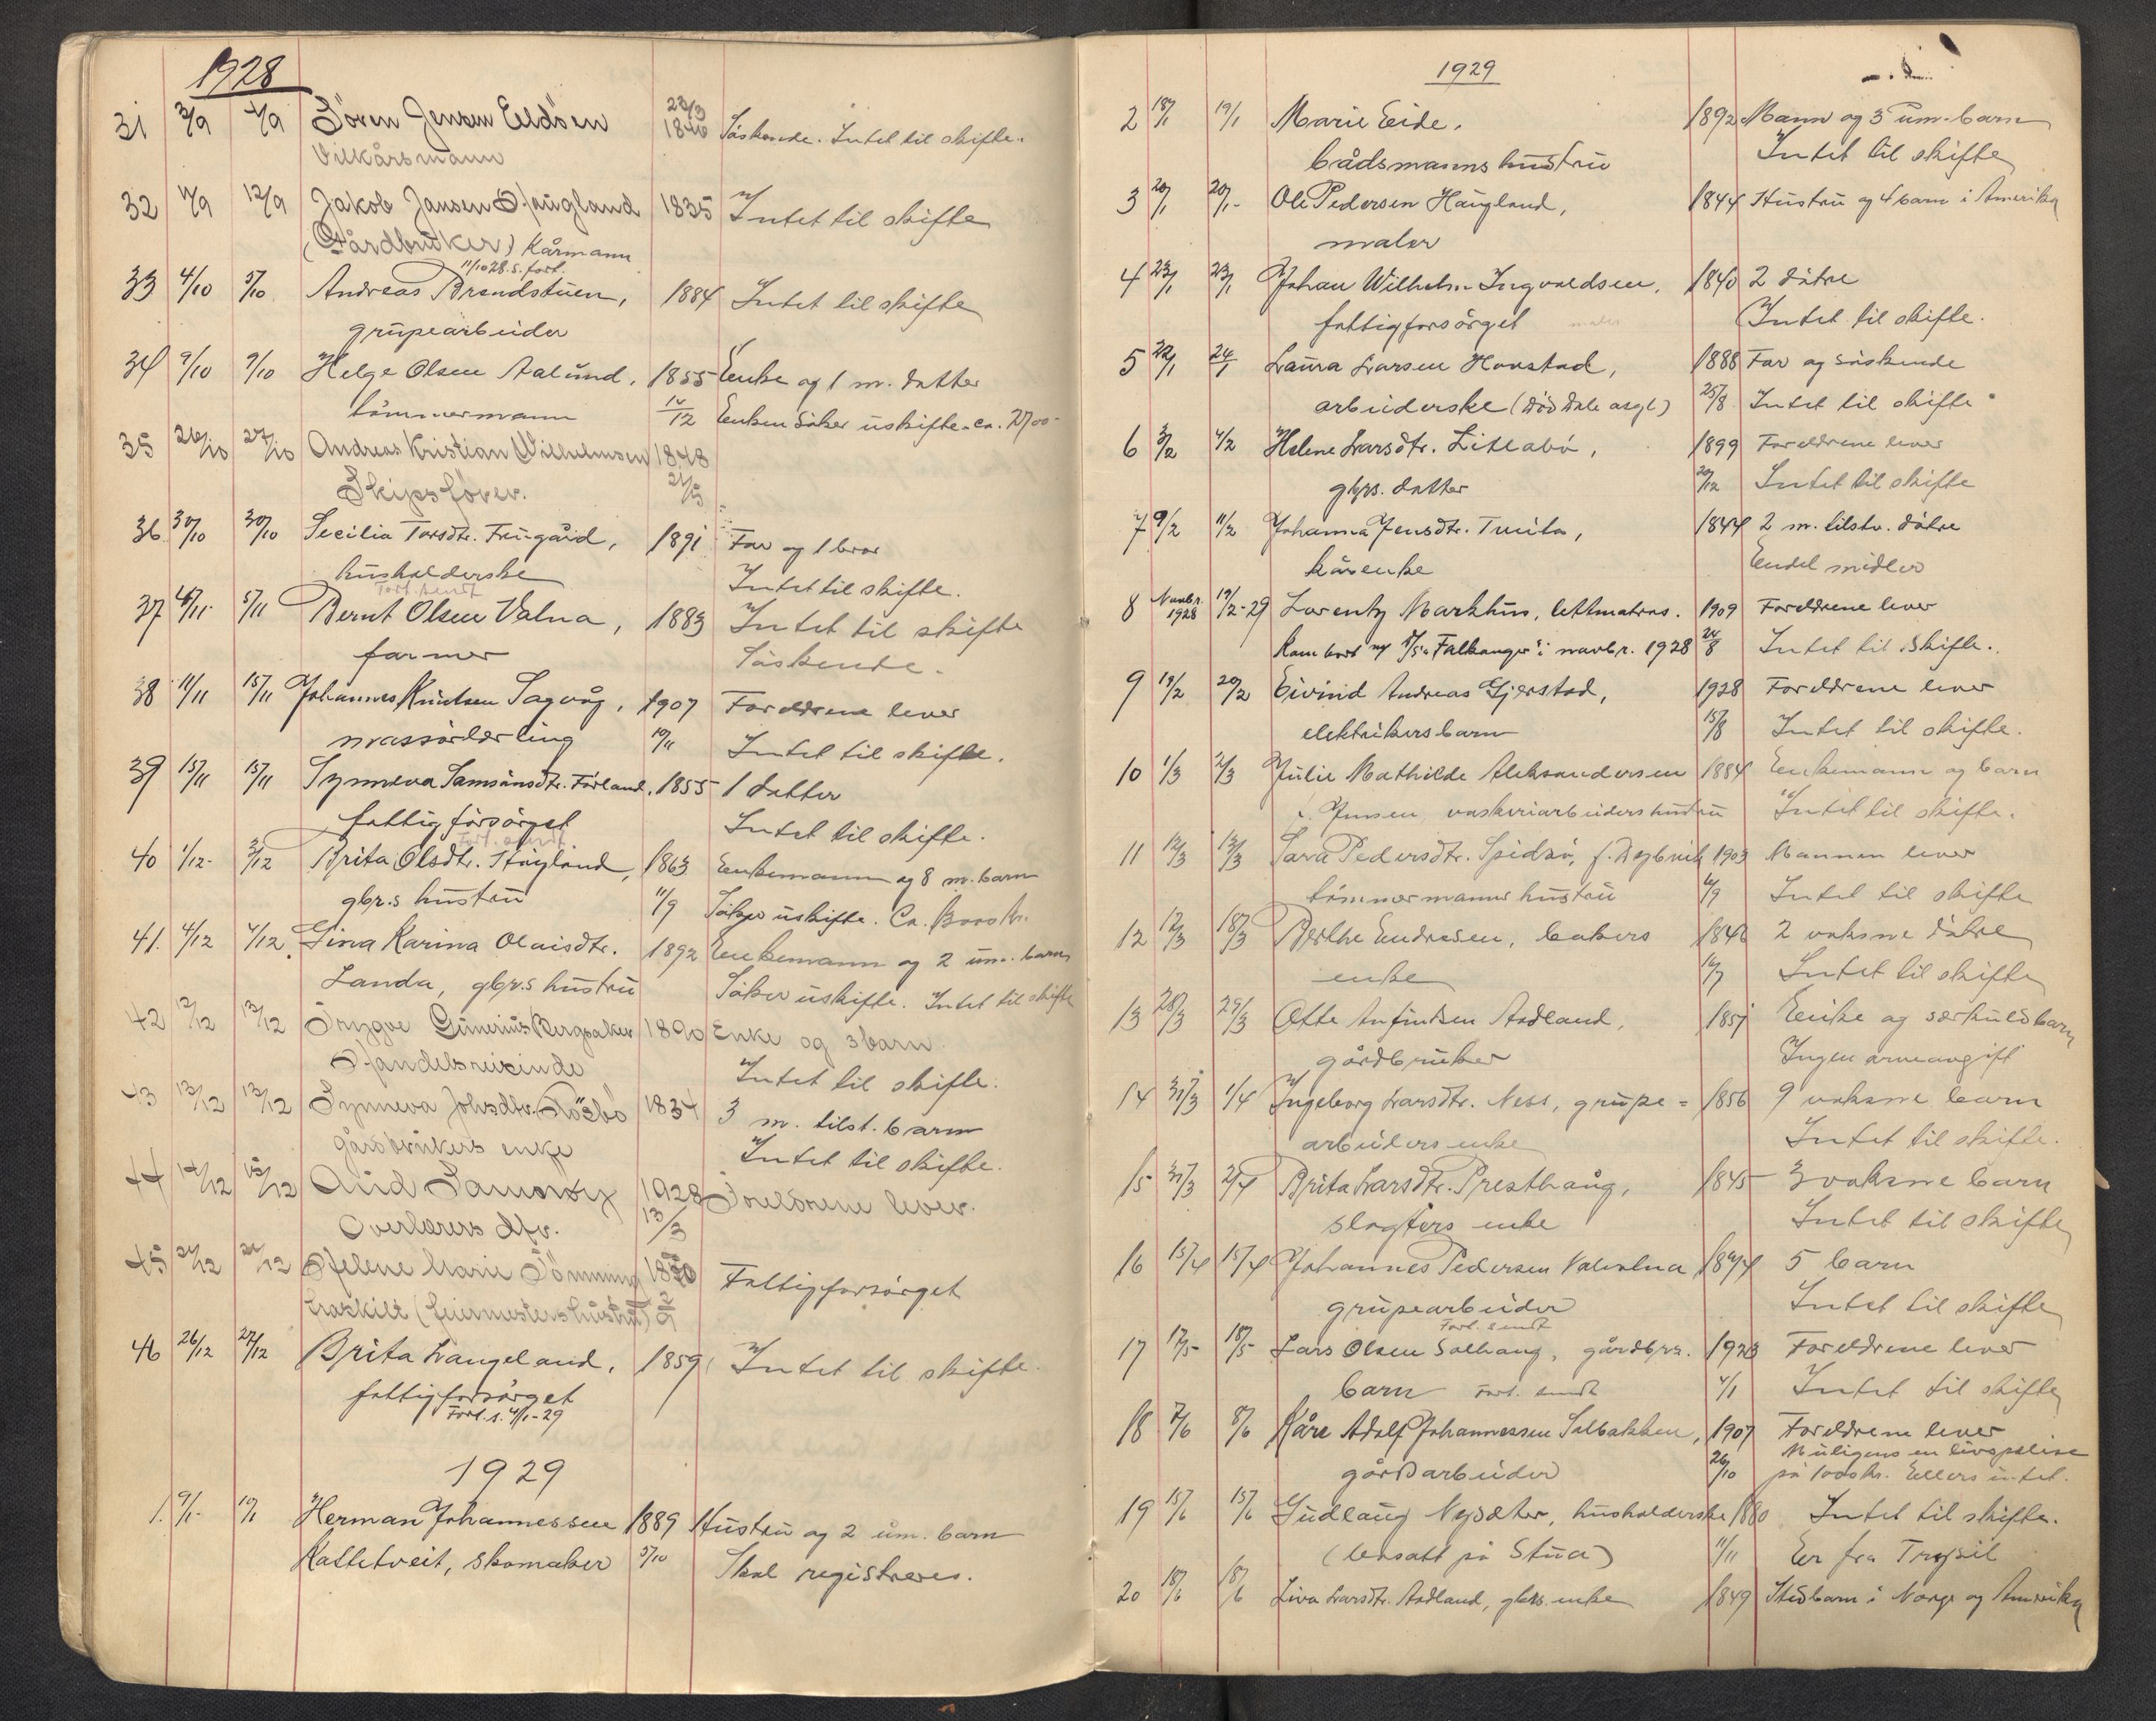 1928
31 3/9 4/9 Sören Jensen Eldöen 23/3 1846 Söskende. Intet til skifte.
Vilkårsmann
32 11/9 12/9 Jakob Jansen Haugland 1835 Intet til skifte
(Gårdbruker) Kårmann
11/10 28. s. fort.
33 4/10 5/10 Andreas Brendstuen, 1884 Intet til skifte
grupearbeider
34 9/10 9/10 Helge Olsen Aalund, 1855 Enke og 1 m. datter
tömmermann 14/12 Enken söker uskifte. ca.
35 26/10 27/10 Andreas Kristian Wilhelmsen 1848
Skipsförer. 21/5
36 30/10 30/10 Secilia Torsdtr. Frugård, 1891 Far og 1 bror
husholderske Intet til skifte.
Fort. sendt
37 4/11 5/11 Bernt Olsen Valna, 1883 Intet til skifte
farmer Söskende.
38 11/11 15/11 Johannes Knutsen Sagvåg, 1907 Foreldrene lever
målerlærling 19/11 Intet til skifte.
39 15/11 15/11 Synneva Samsonsdtr. Förland, 1855 1 datter
fattigforsörget Intet til skifte.
Fort. sendt
40 1/12 3/12 Brita Olsdtr. Höyland, 1863 Enkemann og 8 m. barn
gbr.s hustru 11/9 Söker uskifte. Ca. 8000 kr.
41. 4/12 4/12. Gina Karina Olaisdtr. 1892 Enkemann og 2 um. barn
Landa, gbr.s hustru Söker uskifte. Intet til skifte
42 12/12 13/12 Trygve Gunerius Bergsaker 1890 Enke og 3 barn.
Handelsreisende Intet til skifte.
43 13/12 13/12 Synneva Johsdtr. Rösbö 1834 3 m. tilst. barn
gårdbrukers enke Intet til skifte.
44 14/12 15/12 Aud Samsröy 1928 Foreldrene lever.
Overlærers dtr. 13/3
45 21/12 21/12 Helene Marie Tömming 1850 Fattigforsörget
fraskilt (feiermesters hustru) 2/9
46 26/12 27/12 Brita Langeland, 1859 Intet til skifte.
fattigforsörget
Fort. s. 4/1-29
1929
1. 9/1 10/1 Herman Johannessen 1889 Hustru og 2 um. barn
Kattetveit, skomaker 5/10 Skal registreres.
1929
2 18/1 19/1 Marie Eide, 1892 Mann og 3 um. barn
bådsmanns hustru Intet til skifte
3 20/1 20/1- Ole Pedersen Haugland, 1844 Hustru og 4 barn i Amerika
maler
4 23/1 23/1 Johan Wilhelm Ingvaldsen, 1840 2 dötre
fattigforsörget Intet til skifte.
5 22/1 24/1 Laura Larsen Hovstad, 1888 Far og söskende
arbeiderske (död Dale asyl) 25/8 Intet til skifte
6 3/2 4/2 Helene Larsdtr. Litlabö, 1899 Foreldrene lever
gbrs. datter 20/12 Intet til skifte
7 9/2 11/2 Johanna Jensdtr. Tveita, 1844 2 m. tilstv. dötre
kårenke Endel midler
8 Novbr. 1928 19/2-29 Lorentz Markhus, lettmatros. 1909 Foreldrene lever
Kom bort m/ D/S "Falkanger" i novbr. 1928 24/8 Intet til skifte.
9 19/2 20/2 Eivind Andreas Gjerstad, 1928 Foreldrene lever
elektrikers barn 15/8 Intet til skifte.
10 1/3 2/3 Julie Mathilde Aleksandersen 1884 Enkemann og barn
f. Jensen, vaskeriarbeiders hustru Intet til skifte.
11 12/3 13/3 Sara Pedersdtr. Spidsö, f. Dybvik 1903 Mannen lever
tömmermanns hustru 6/9 Intet til skifte
12 12/3 18/3 Berthe Endresen, bakers 1846 2 voksne dötre
enke 16/7 Intet til skifte
13 28/3 29/3 Otte Anfindsen Aadland, 1857 Enke og særkuldsbarn
gårdbruker Ingen arveavgift
14 31/3 1/4 Ingeborg Larsdtr. Ness, grupe= 1856 9 voksne barn
arbeiders enke Intet til skifte.
15 31/3 2/4 Brita Larsdtr. Presthaug, 1845 3 voksne barn
slagters enke Intet til skifte
16 15/4 15/4 Johannes Pedersen Valvatna 5 barn
grupearbeider Intet til skifte
Fort. sendt
17 17/5 18/5 Lars Olsen Solhaug, gårdbrs. 1923 Foreldrene lever
barn Fort. sendt 4/1 Intet til skifte
18 7/6 8/6 Kåre Adolf Johannessen Solbakken, 1907 Foreldrene lever
Muligens en livspolise
gårdsarbeider 26/10 på 1000 kr. Ellers intet.
19 15/6 15/6 Gudlaug Nysæter, husholderske 1880 Intet til skifte.
(bosatt på Stua) 11/11 Er fra Trysil
20 18/6 18/6 Liva Larsdtr. Aadland, gbrs. enke 1849 Stedbarn i Norge og Amerika